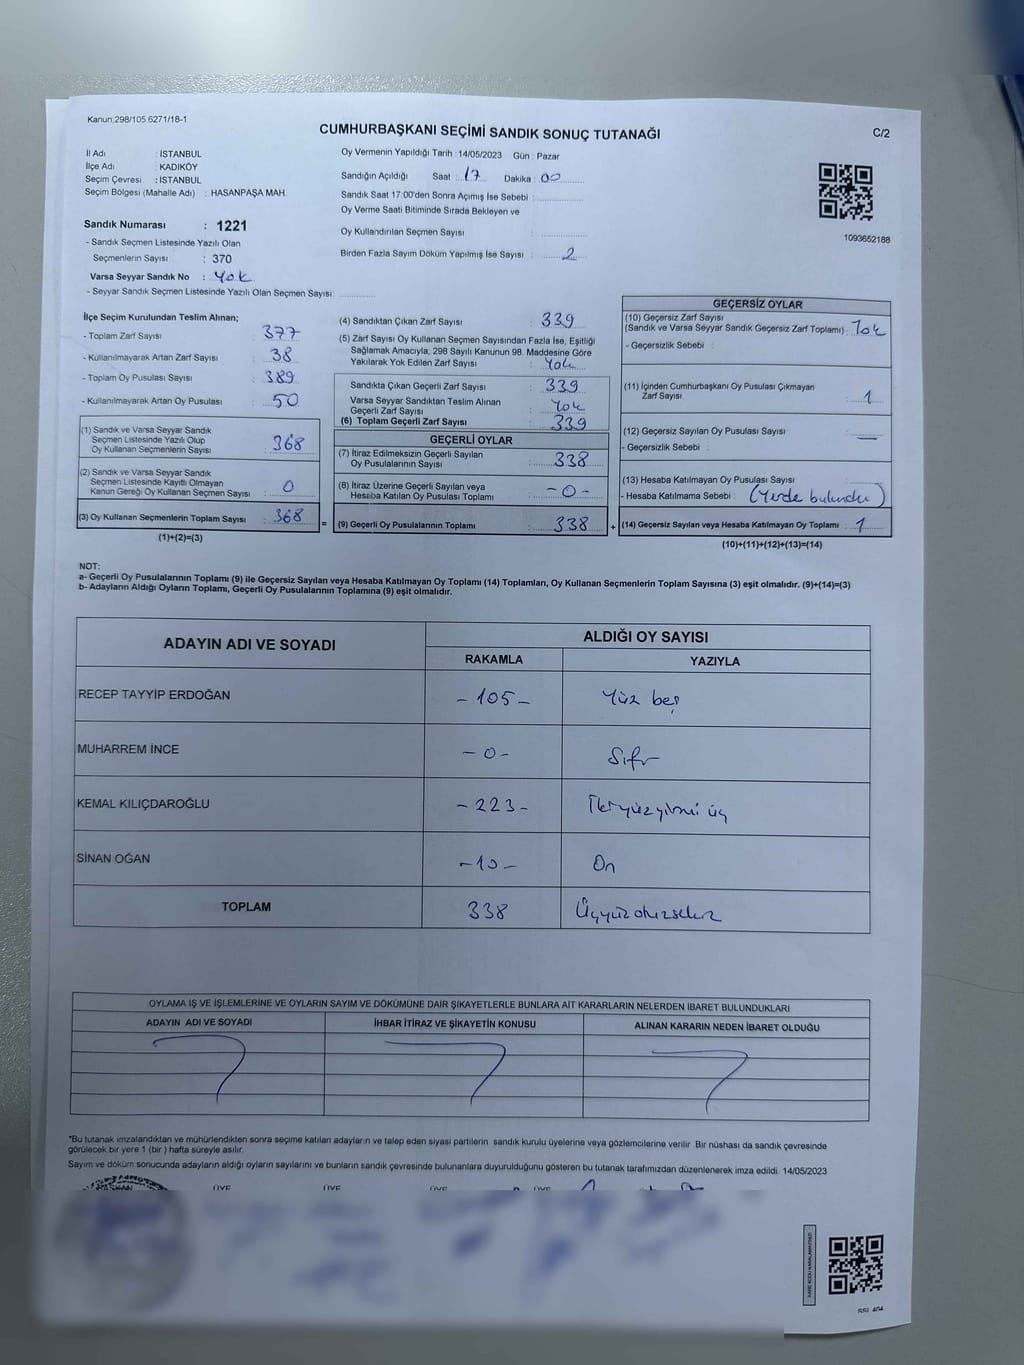 Kanun:298/105 6271/18-1
CUMHURBAŞKANI SEÇİMİ SANDIK SONUÇ TUTANAĞI
C/2
İl Adı : İSTANBUL
İlçe Adı : KADIKÖY
Seçim Çevresi : İSTANBUL
Seçim Bölgesi (Mahalle Adı) : HASANPAŞA MAH.
Sandık Numarası : 1221
- Sandık Seçmen Listesinde Yazılı Olan
Seçmenlerin Sayısı : 370
Varsa Seyyar Sandık No : Yok
- Seyyar Sandık Seçmen Listesinde Yazılı Olan Seçmen Sayısı:
Oy Vermenin Yapıldığı Tarih :14/05/2023 Gün : Pazar
Sandığın Açıldığı Saat : 17 Dakika : 00
Sandık Saat 17:00'den Sonra Açımış İse Sebebi :
Oy Verme Saati Bitiminde Sırada Bekleyen ve
Oy Kullandırılan Seçmen Sayısı :
Birden Fazla Sayım Döküm Yapılmış İse Sayısı : 2
1093652188
İlçe Seçim Kurulundan Teslim Alınan;
- Toplam Zarf Sayısı : 377
- Kullanılmayarak Artan Zarf Sayısı : 38
- Toplam Oy Pusulası Sayısı : 389
- Kullanılmayarak Artan Oy Pusulası : 50
(1) Sandık ve Varsa Seyyar Sandık
Seçmen Listesinde Yazılı Olup
Oy Kullanan Seçmenlerin Sayısı : 368
(2) Sandık ve Varsa Seyyar Sandık
Seçmen Listesinde Kayıtlı Olmayan
Kanun Gereği Oy Kullanan Seçmen Sayısı : 0
(3) Oy Kullanan Seçmenlerin Toplam Sayısı : 368
(1)+(2)=(3)
(4) Sandıktan Çıkan Zarf Sayısı : 339
(5) Zarf Sayısı Oy Kullanan Seçmen Sayısından Fazla İse, Eşitliği
Sağlamak Amacıyla; 298 Sayılı Kanunun 98. Maddesine Göre
Yakılarak Yok Edilen Zarf Sayısı : Yok
Sandıkta Çıkan Geçerli Zarf Sayısı : 339
Varsa Seyyar Sandıktan Teslim Alınan
Geçerli Zarf Sayısı : Yok
(6) Toplam Geçerli Zarf Sayısı : 339
GEÇERLİ OYLAR
(7) İtiraz Edilmeksizin Geçerli Sayılan
Oy Pusulalarının Sayısı : 338
(8) İtiraz Üzerine Geçerli Sayılan veya
Hesaba Katılan Oy Pusulası Toplamı : -0-
= (9) Geçerli Oy Pusulalarının Toplamı : 338
GEÇERSİZ OYLAR
(10) Geçersiz Zarf Sayısı
(Sandık ve Varsa Seyyar Sandık Geçersiz Zarf Toplamı) : Yok
- Geçersizlik Sebebi :
(11) İçinden Cumhurbaşkanı Oy Pusulası Çıkmayan
Zarf Sayısı : 1
(12) Geçersiz Sayılan Oy Pusulası Sayısı : —
- Geçersizlik Sebebi :
(13) Hesaba Katılmayan Oy Pusulası Sayısı :
- Hesaba Katılmama Sebebi : (Yerde bulundu)
+ (14) Geçersiz Sayılan veya Hesaba Katılmayan Oy Toplamı : 1
(10)+(11)+(12)+(13)=(14)
NOT:
a- Geçerli Oy Pusulalarının Toplamı (9) ile Geçersiz Sayılan veya Hesaba Katılmayan Oy Toplamı (14) Toplamları, Oy Kullanan Seçmenlerin Toplam Sayısına (3) eşit olmalıdır. (9)+(14)=(3)
b- Adayların Aldığı Oyların Toplamı, Geçerli Oy Pusulalarının Toplamına (9) eşit olmalıdır.
ADAYIN ADI VE SOYADI
ALDIĞI OY SAYISI
RAKAMLA YAZIYLA
RECEP TAYYİP ERDOĞAN - 105 - Yüz beş
MUHARREM İNCE - 0 - Sıfır
KEMAL KILIÇDAROĞLU - 223 - İkiyüzyirmi üç
SİNAN OĞAN - 10 - On
TOPLAM 338 Üçyüzotuzsekiz
OYLAMA İŞ VE İŞLEMLERİNE VE OYLARIN SAYIM VE DÖKÜMÜNE DAİR ŞİKAYETLERLE BUNLARA AİT KARARLARIN NELERDEN İBARET BULUNDUKLARI
ADAYIN ADI VE SOYADI İHBAR İTİRAZ VE ŞİKAYETİN KONUSU ALINAN KARARIN NEDEN İBARET OLDUĞU
*Bu tutanak imzalandıktan ve mühürlendikten sonra seçime katılan adayların ve talep eden siyasi partilerin sandık kurulu üyelerine veya gözlemcilerine verilir. Bir nüshası da sandık çevresinde
görülecek bir yere 1 (bir ) hafta süreyle asılır.
Sayım ve döküm sonucunda adayların aldığı oyların sayılarını ve bunların sandık çevresinde bulunanlara duyurulduğunu gösteren bu tutanak tarafımızdan düzenlenerek imza edildi. 14/05/2023
ÜYE ÜYE ÜYE ÜYE